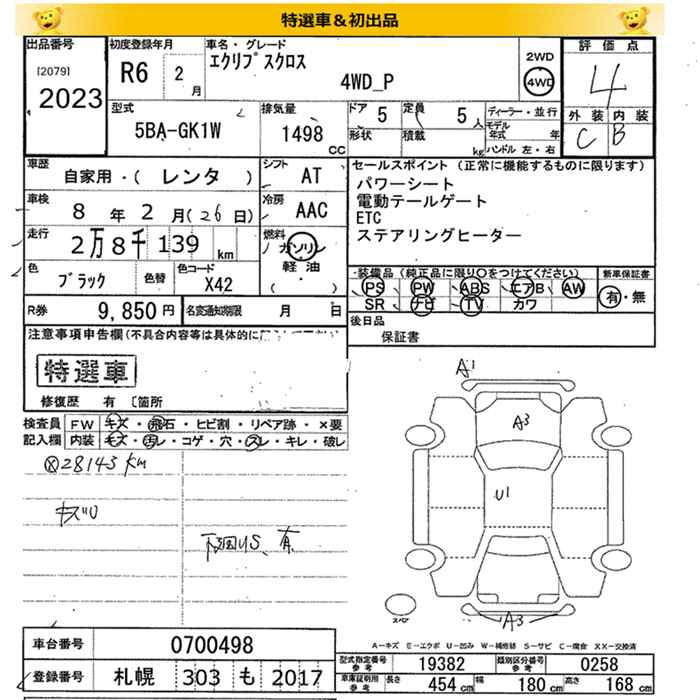 特選車＆初出品
出品番号
[2079]
2023
初度登録年月
R6 2 月
車名・グレード
エクリプスクロス
4WD_P
2WD
4WD
評価点
4
外装 内装
C B
型式
5BA-GK1W
排気量
1498 CC
ドア 5
定員 5 人
形状
積載 kg
ディーラー・並行
モデル年式 年
ハンドル 左・右
車歴
自家用・( レンタ )
シフト
AT
車検
8 年 2 月 (26 日)
冷房
AAC
走行
2万8千139 km
燃料
ガソリン
軽油
( ・ )
色
ブラック
色替
色コード
X42
R券
9,850 円
名変通知期限 月 日
セールスポイント (正常に機能するものに限ります)
パワーシート
電動テールゲート
ETC
ステアリングヒーター
装備品(純正品に限り○をつけてください)
PS PW ABS エアB AW
SR ナビ TV カワ
新車保証書
有・無
後日品
保証書
注意事項申告欄(不具合内容等は具体的に
特選車
修復歴 有 〔箇所
検査員記入欄
FW キズ・飛石・ヒビ割・リペア跡・×要
内装 キズ・汚レ・コゲ・穴・スレ・キレ・破レ
28143 km
キズU
下回りS、有
A1
A3
U1
A3
スペア
A－キズ E－エクボ U－凹み W－補修跡 S－サビ C－腐食 XX－交換済
車台番号
0700498
登録番号
札幌 303 も 2017
型式指定番号 参考
19382
類別区分番号 参考
0258
車庫証明用 参考
長さ 454 cm
幅 180 cm
高さ 168 cm